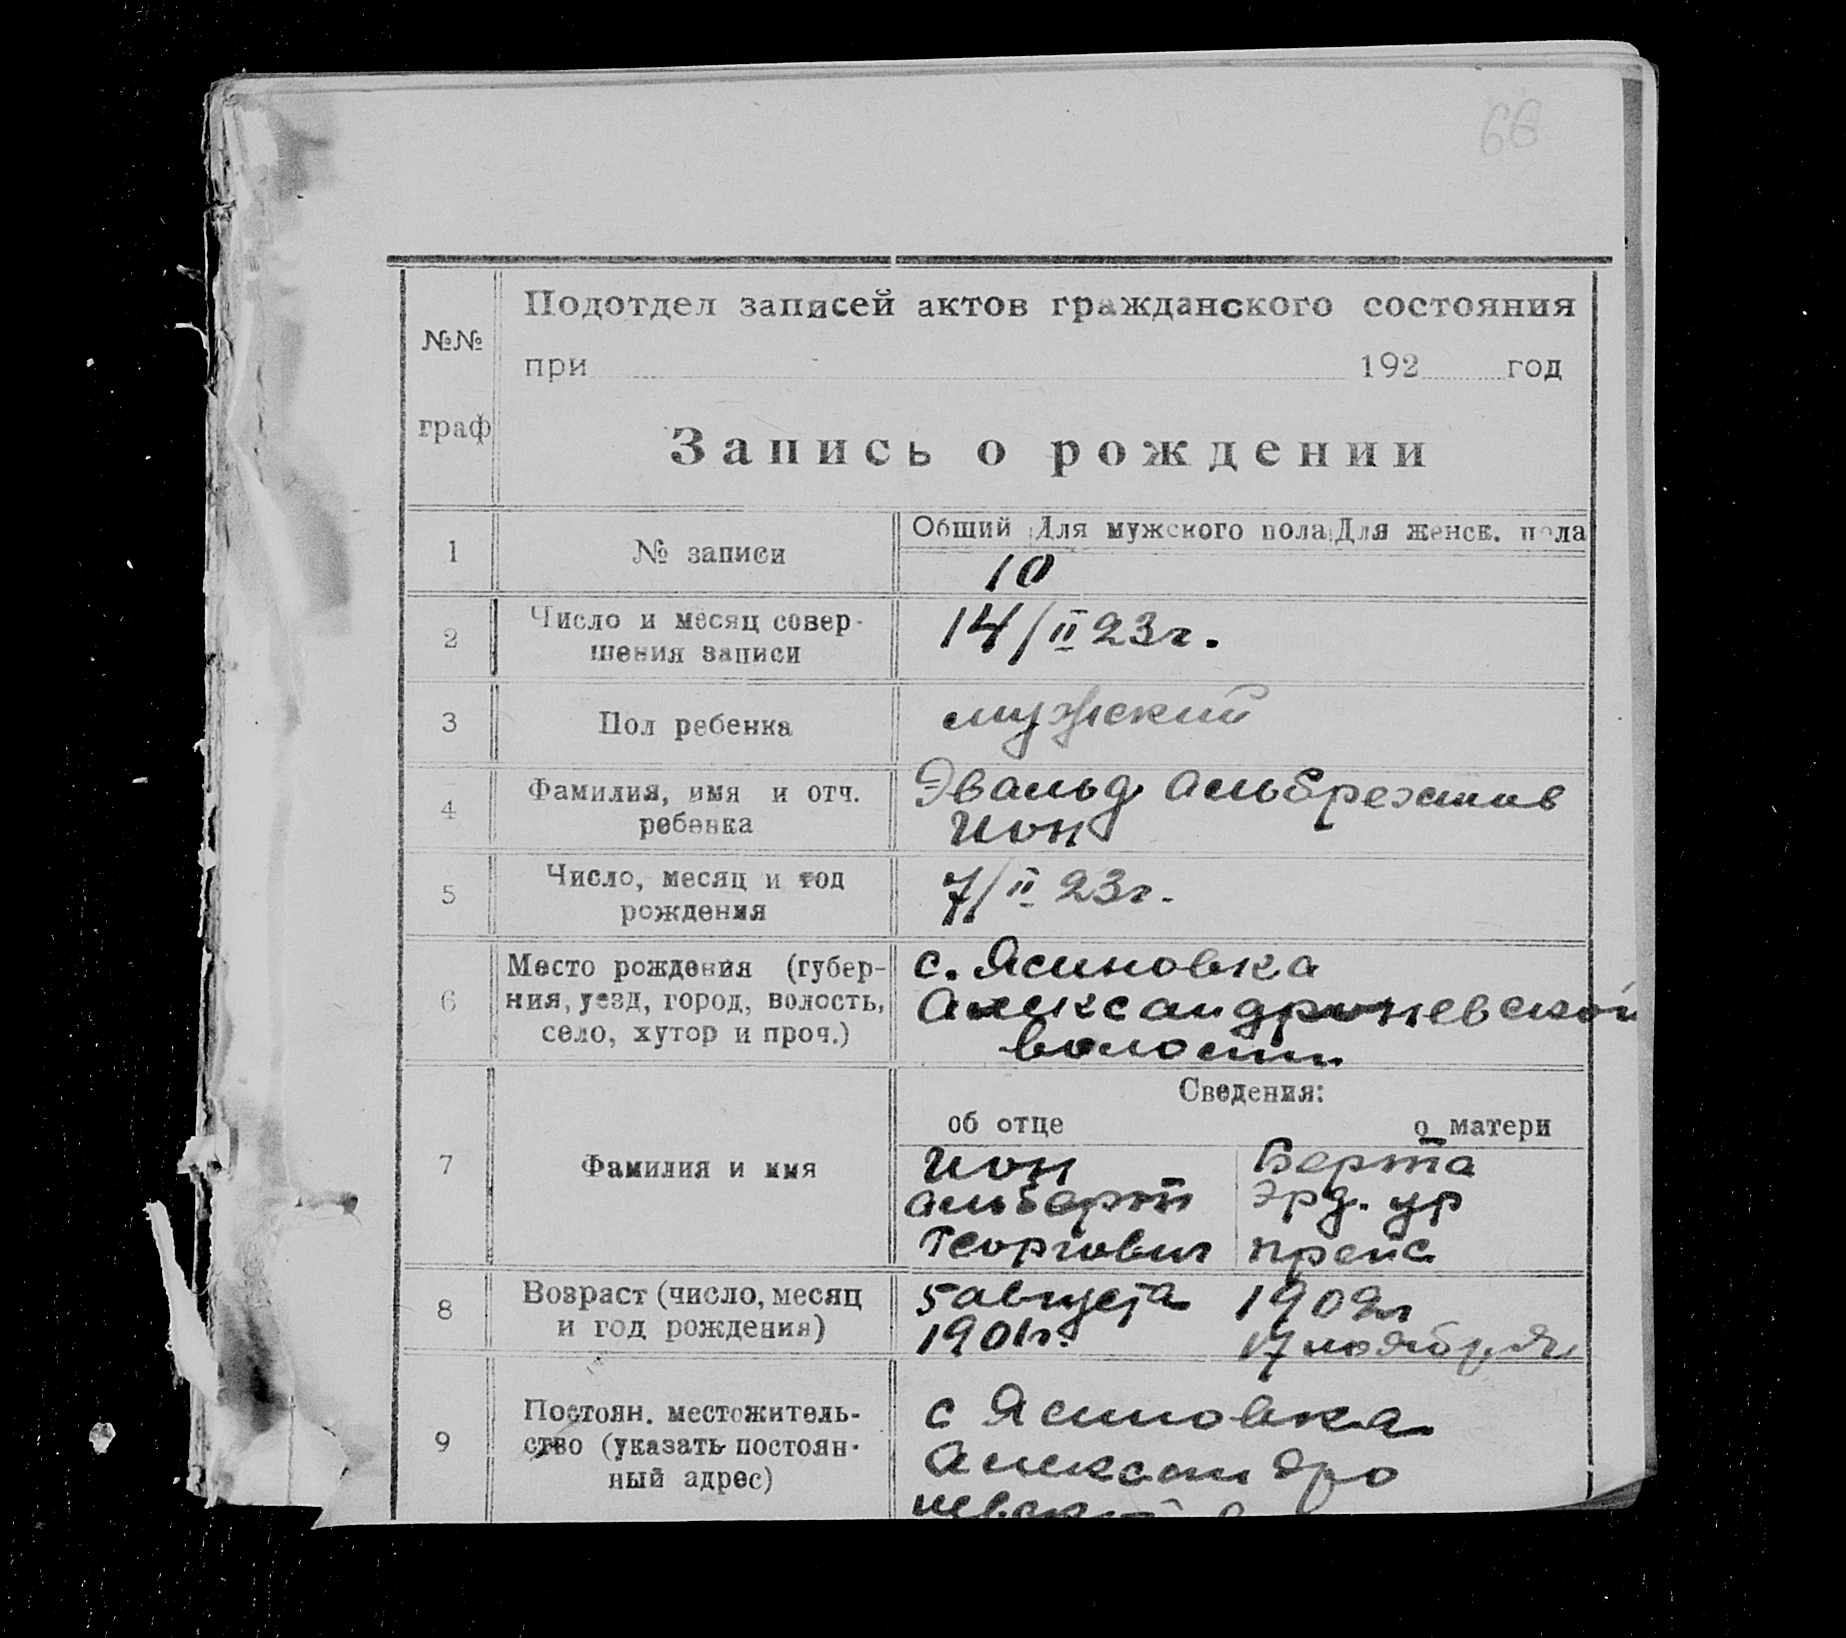 68
№№
граф
Подотдел записей актов гражданского состояния
при 192 год
Запись о рождении
1
№ записи
Общий Для мужского пола Для женск. пола
10
2
Число и месяц совер-
шения записи
14/II 23г.
3
Пол ребенка
мужский
4
Фамилия, имя и отч.
ребенка
Эвальд Альбрехтив
Ион
5
Число, месяц и год
рождения
7/II 23г.
6
Место рождения (губер-
ния, уезд, город, волость,
село, хутор и проч.)
с. Ясиновка
Александроневской
волости
Сведения:
об отце
о матери
7
Фамилия и имя
Ион
Альберт
Георгович
Берта
Эрд. ур
прейс
8
Возраст (число, месяц
и год рождения)
5 августа
1901г.
1902г
17 ноября
9
Постоян. местожитель-
ство (указать постоян-
ный адрес)
с Ясиновка
Александро
невской